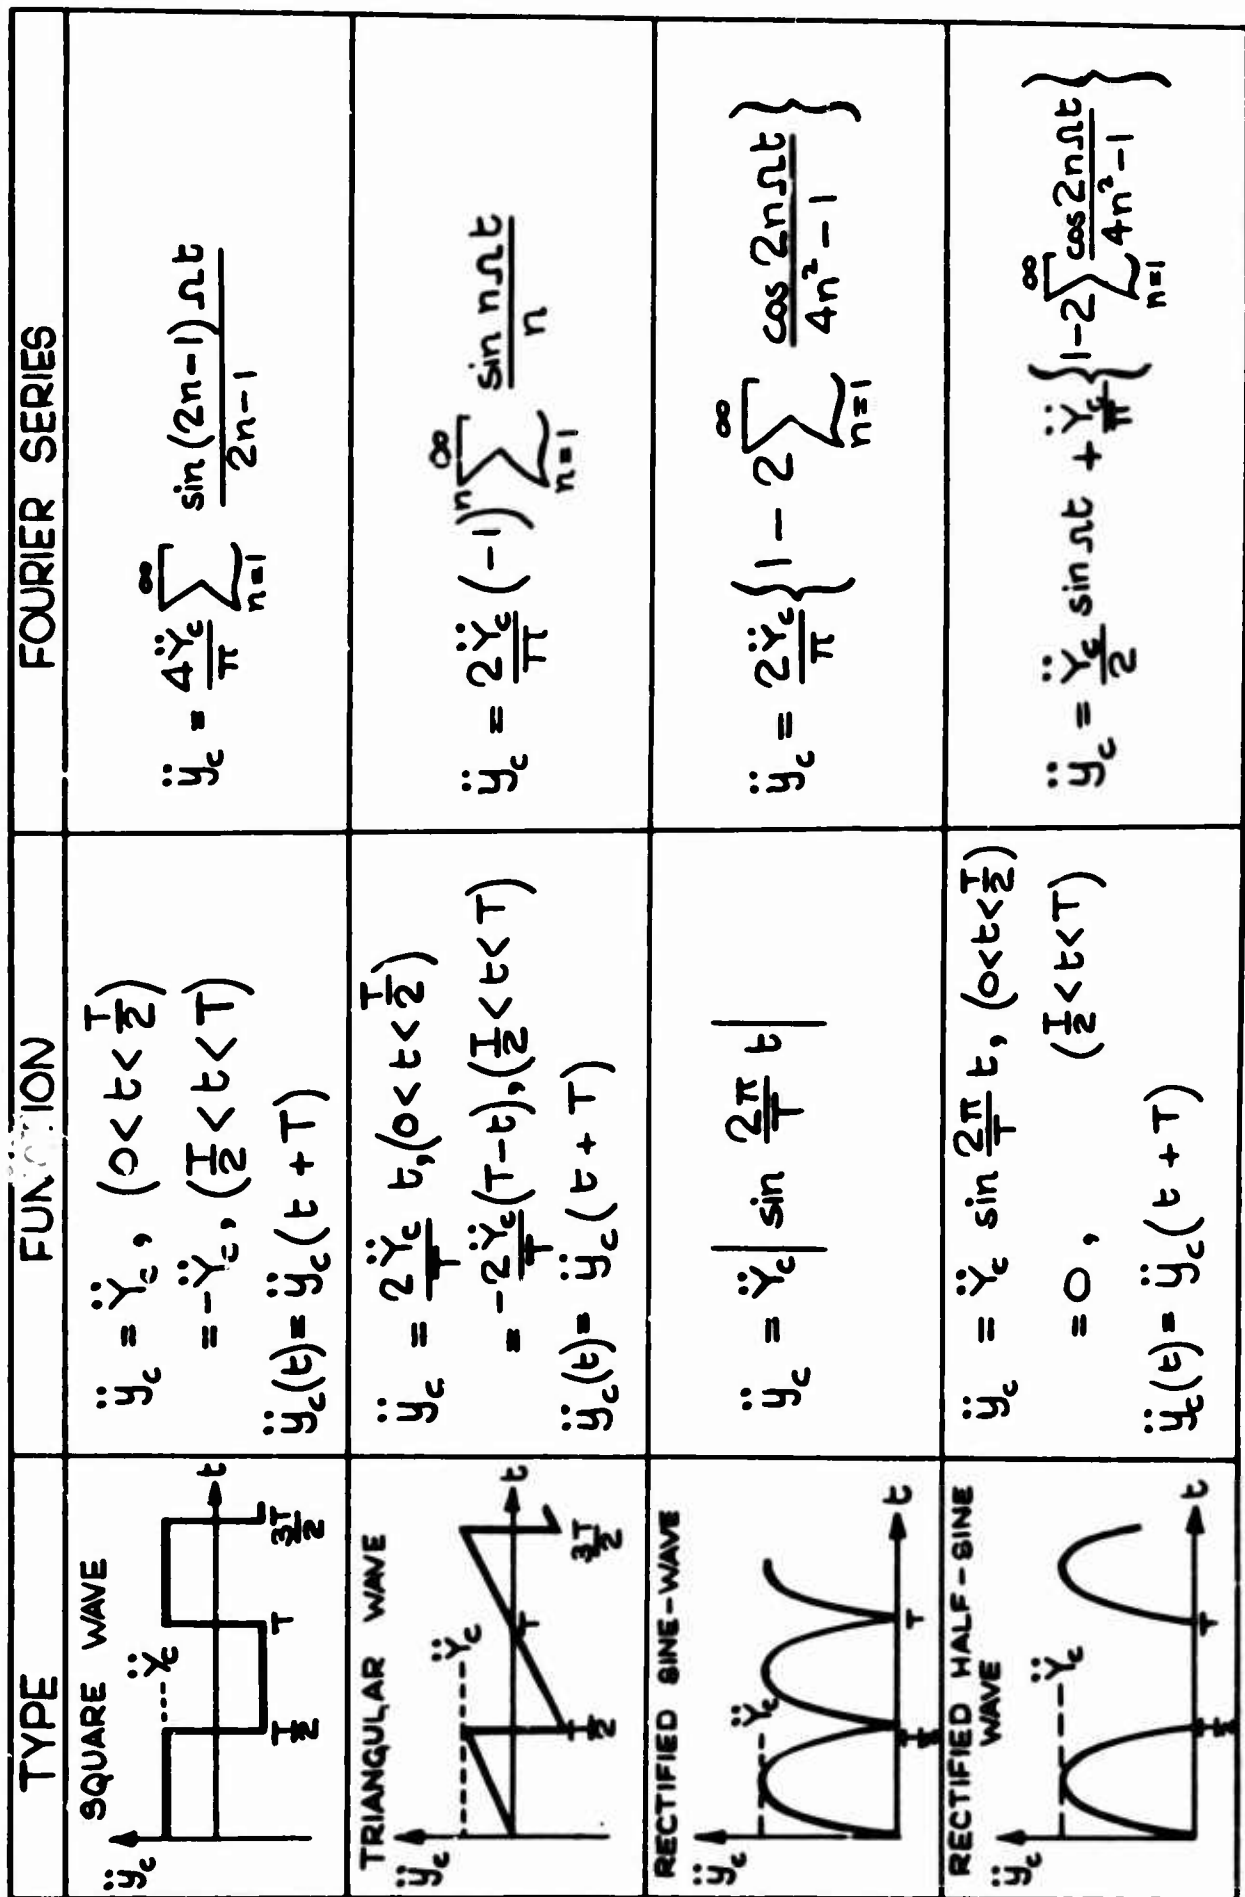 TYPE
FUNCTION
FOURIER SERIES
SQUARE WAVE
ÿ_c
Ÿ_c
T/2
T
3T/2
t
ÿ_c = Ÿ_c, (0 < t < T/2)
= -Ÿ_c, (T/2 < t < T)
ÿ_c(t) = ÿ_c(t + T)
ÿ_c = 4Ÿ_c/π ∑_{n=1}^{∞} sin(2n-1)Ωt / 2n-1
TRIANGULAR WAVE
ÿ_c
Ÿ_c
T/2
T
3T/2
t
ÿ_c = 2Ÿ_c/T t, (0 < t < T/2)
= -2Ÿ_c/T (T-t), (T/2 < t < T)
ÿ_c(t) = ÿ_c(t + T)
ÿ_c = 2Ÿ_c/π (-1)^n ∑_{n=1}^{∞} sin nΩt / n
RECTIFIED SINE-WAVE
ÿ_c
Ÿ_c
T/2
T
t
ÿ_c = Ÿ_c | sin 2π/T t |
ÿ_c = 2Ÿ_c/π { 1 - 2 ∑_{n=1}^{∞} cos 2nΩt / 4n²-1 }
RECTIFIED HALF-SINE
WAVE
ÿ_c
Ÿ_c
T/2
T
t
ÿ_c = Ÿ_c sin 2π/T t, (0<t<T/2)
= 0, (T/2 < t < T)
ÿ_c(t) = ÿ_c(t + T)
ÿ_c = Ÿ_c/2 sin Ωt + Ÿ_c/π { 1-2 ∑_{n=1}^{∞} cos 2nΩt / 4n²-1 }